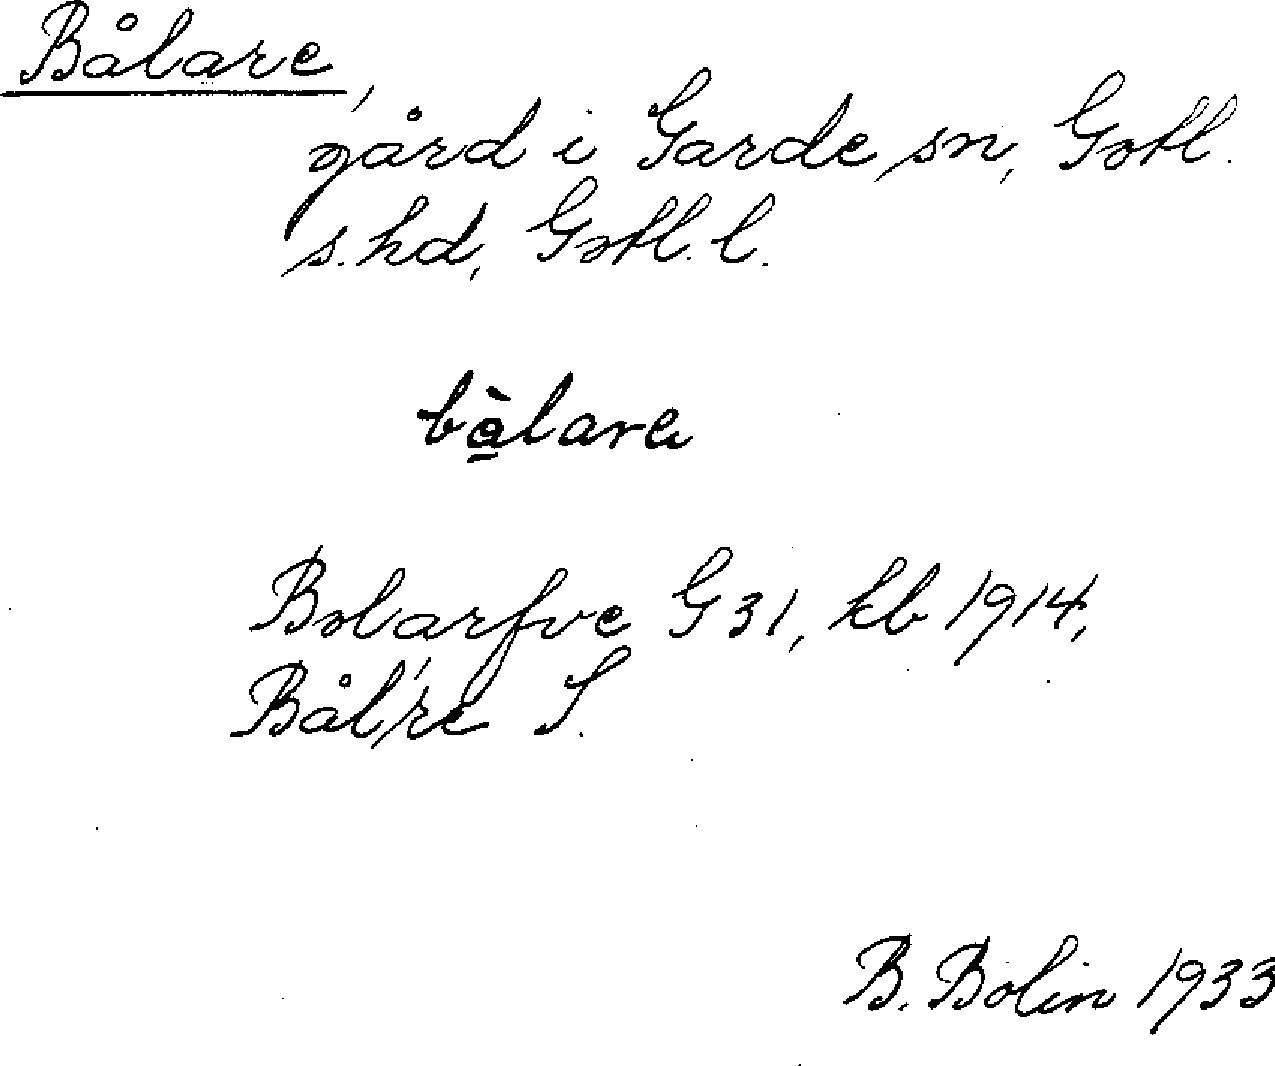 Bålare,
gård i Garde sn, Gotl.
s. hd, Gotl. l.
bàlare
Bolarfve G 31, kb 1914,
Bål're S.
B. Bolin 1933